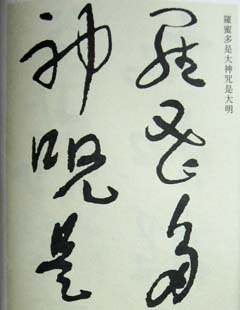 羅蜜多是大神咒是大明
羅蜜多
神呪是